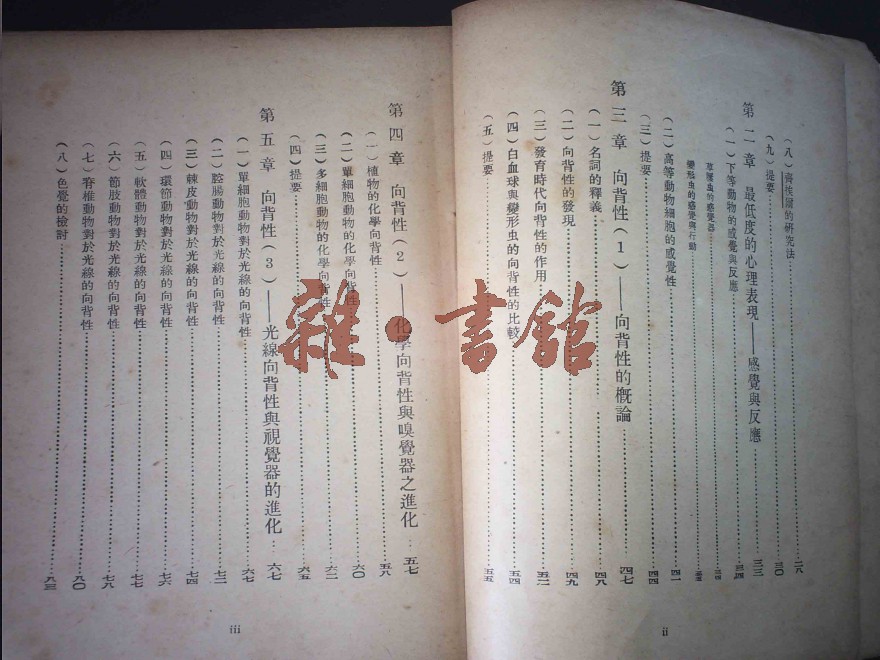 (八)脊椎層的研究法……二八
(九)提要……三〇
第二章 最低度的心理表現——感覺與反應……三三
(一)下等動物的感覺與反應……三四
草履虫的感覺器……三四
變形虫的感覺與行動……三五
(二)高等動物細胞的感覺性……四一
(三)提要……四四
第三章 向背性(1)——向背性的概論……四七
(一)名詞的釋義……四八
(二)向背性的發現……四九
(三)發育時代向背性的作用……五二
(四)白血球與變形虫的向背性的比較……五四
(五)提要……五五
ii
第四章 向背性(2)——化學向背性與嗅覺器之進化……五七
(一)植物的化學向背性……五八
(二)單細胞動物的化學向背性……六〇
(三)多細胞動物的化學向背性……六二
(四)提要……六五
第五章 向背性(3)——光線向背性與視覺器的進化……六七
(一)單細胞動物對於光線的向背性……六七
(二)腔腸動物對於光線的向背性……七二
(三)棘皮動物對於光線的向背性……七四
(四)環節動物對於光線的向背性……七六
(五)軟體動物對於光線的向背性……七七
(六)節肢動物對於光線的向背性……七八
(七)脊椎動物對於光線的向背性……八〇
(八)色覺的檢討……八三
iii
雜·書館